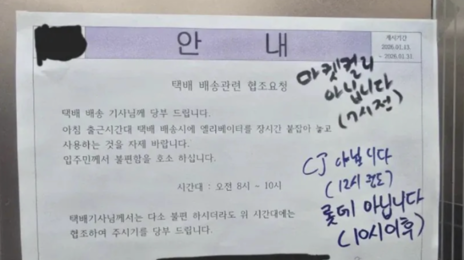 안 내
게시기간
2026.01.13.
~ 2026.01.31
택배 배송관련 협조요청
택배 배송 기사님께 당부 드립니다.
아침 출근시간대 택배 배송시에 엘리베이터를 장시간 붙잡아 놓고
사용하는 것을 자제 바랍니다.
입주민께서 불편함을 호소 하십니다.
시간대 : 오전 8시 ~ 10시
택배기사님께서는 다소 불편 하시더라도 위 시간대에는
협조하여 주시기를 당부 드립니다.
마켓컬리
아닙니다
(7시전)
CJ 아닙니다
(12시 정도)
롯데 아닙니다
(10시이후)